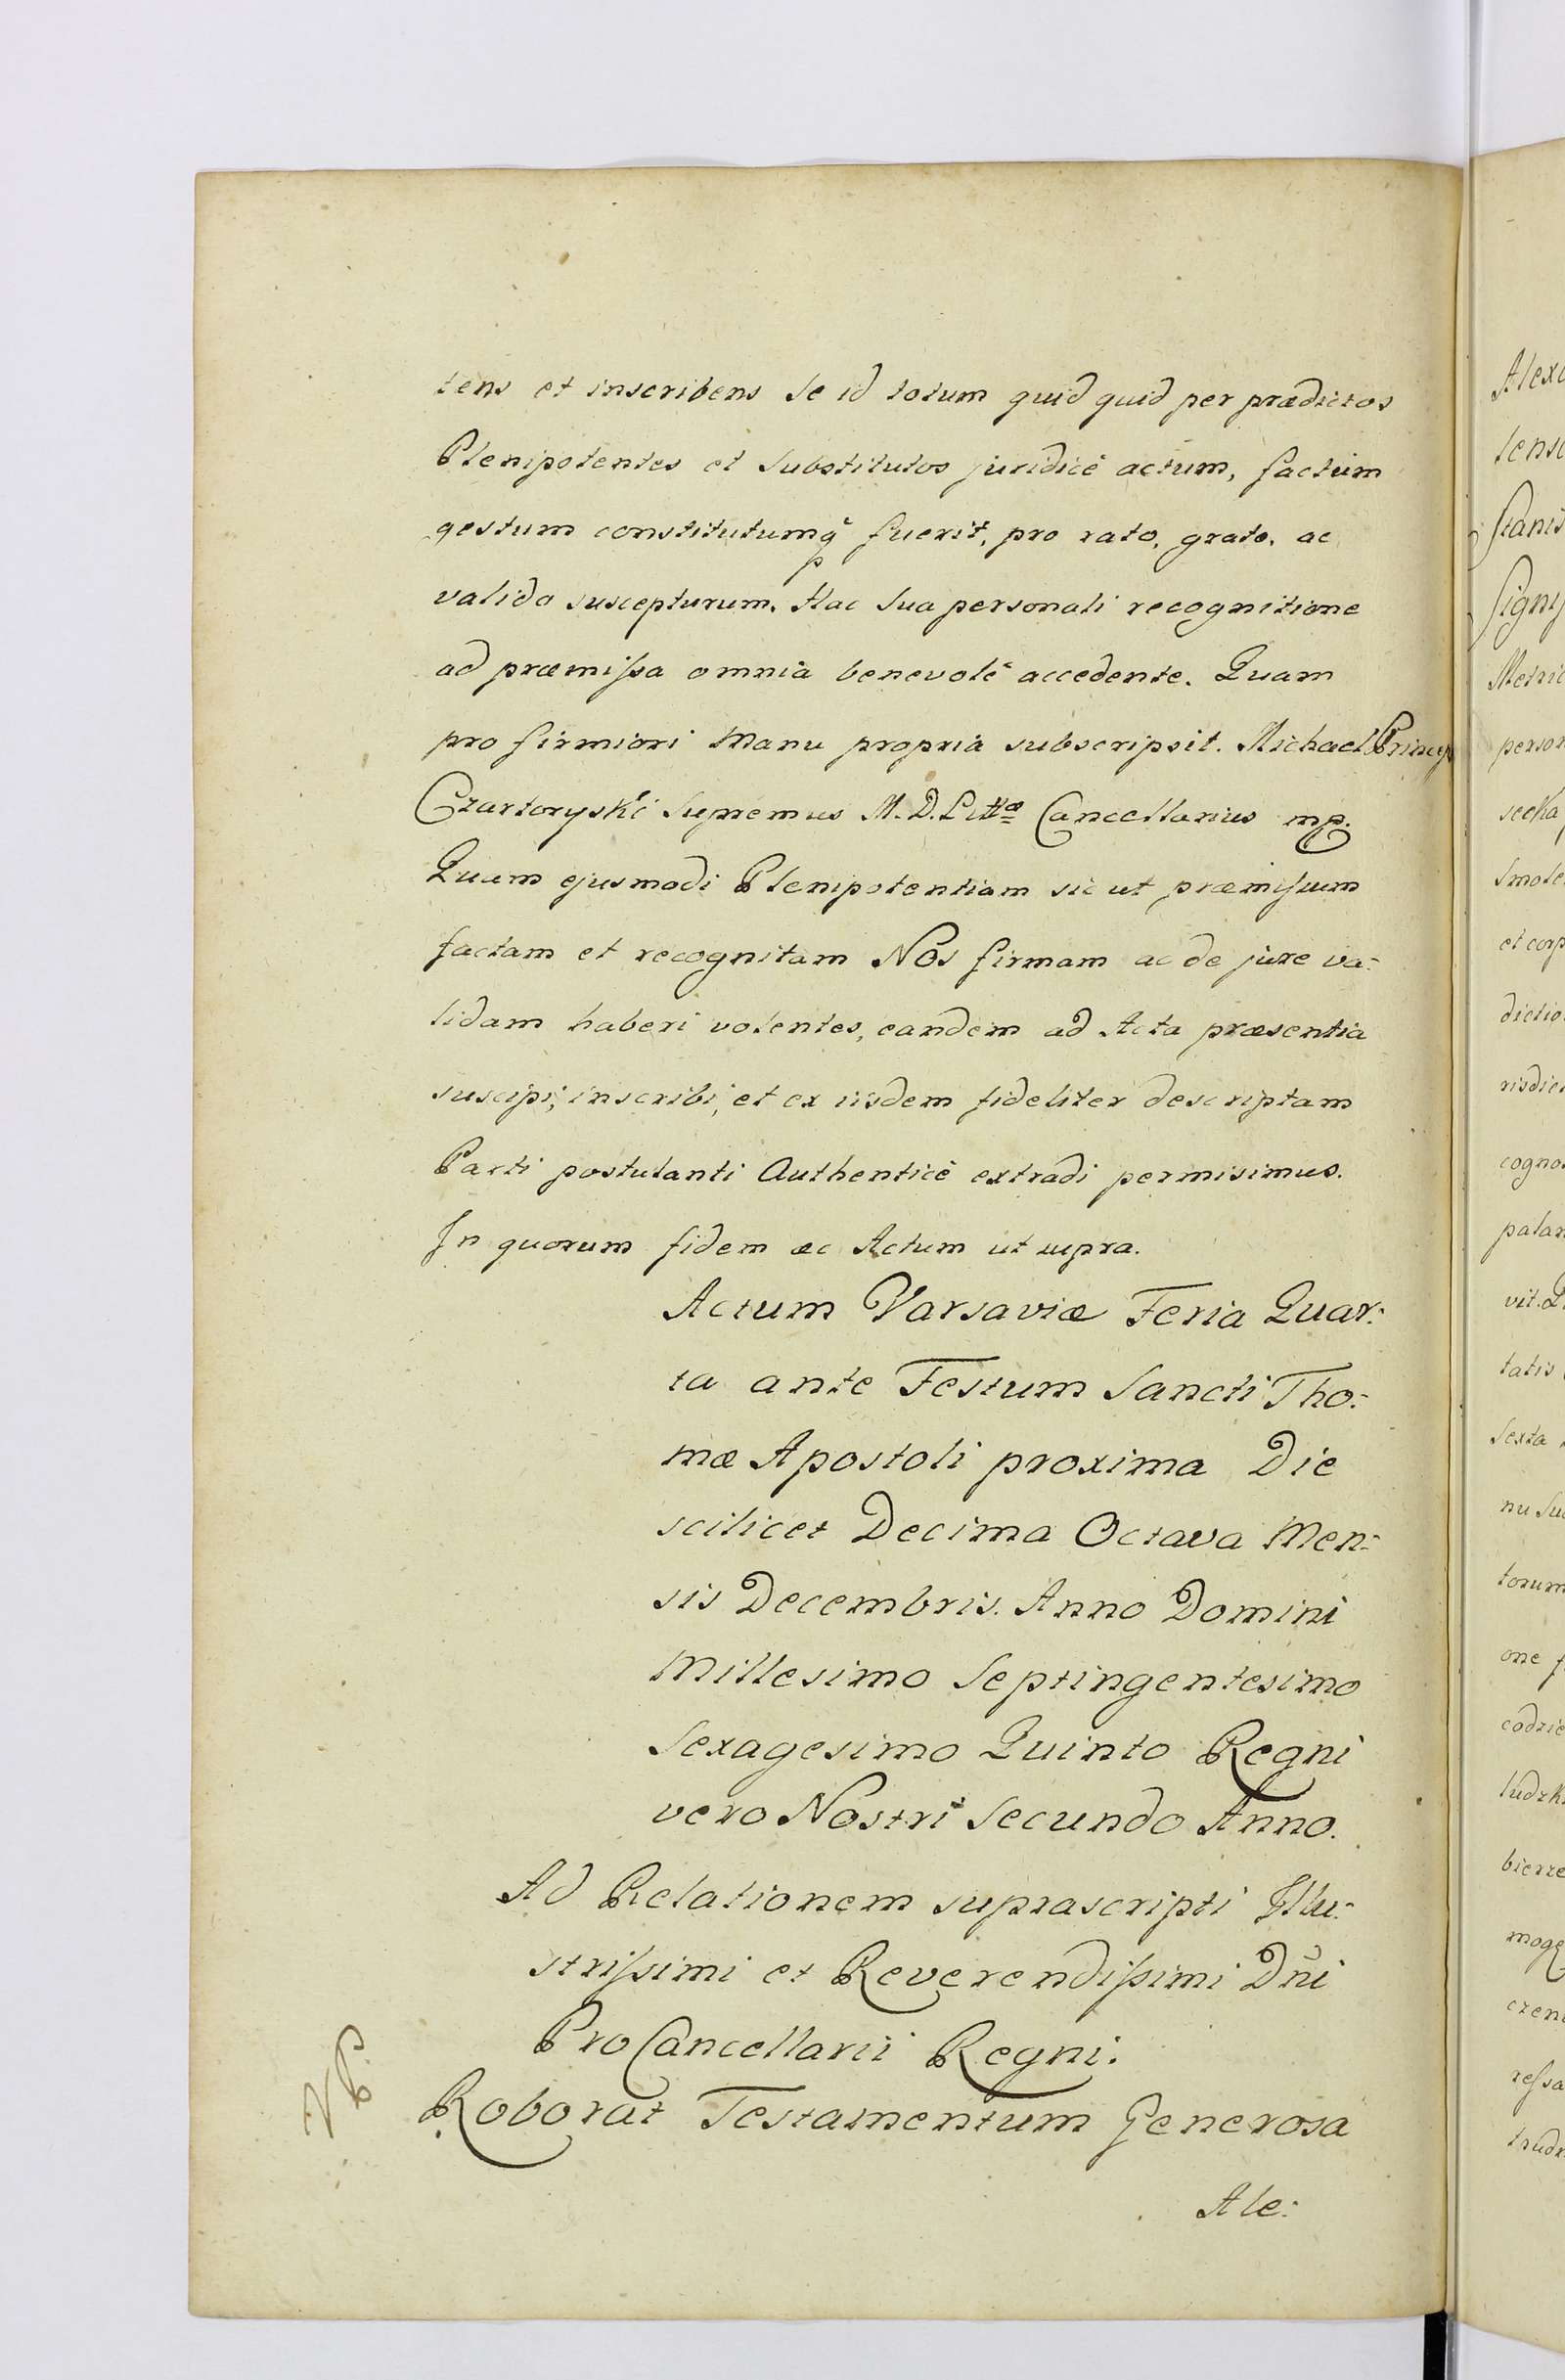 tens et inscribens se id totum quid quid per prædictos
Plenipotentes et Substitutos juridicè actum, factum
gestum constitutumq̃ fuerit, pro rato, grato, ac
valido suscepturum. Hac sua personali recognitione
ad præmissa omnia benevolè accedente. Quam
pro firmiori Manu propria subscripsit. Michael Princeps
Czartoryski Supremus M. D. Littæ Cancellarius mp.
Quam ejusmodi Plenipotentiam sic ut præmissum
factam et recognitam Nos firmam ac de jure va:
lidam haberi volentes, eandem ad Acta præsentia
suscipi, inscribi, et ex iisdem fideliter descriptam
Parti postulanti Authenticè extradi permisimus.
In quorum fidem ac Actum ut supra.
Actum Varsaviæ Feria Quar:
ta ante Festum Sancti Tho:
mæ Apostoli proxima Die
scilicet Decima Octava Men:
sis Decembris. Anno Domini
Millesimo Septingentesimo
Sexagesimo Quinto Regni
vero Nostri Secundo Anno.
Ad Relationem suprascripti Illu:
strissimi et Reverendissimi Dñi
ProCancellarii Regni.
Roborat Testamentum Generosa
Ale: